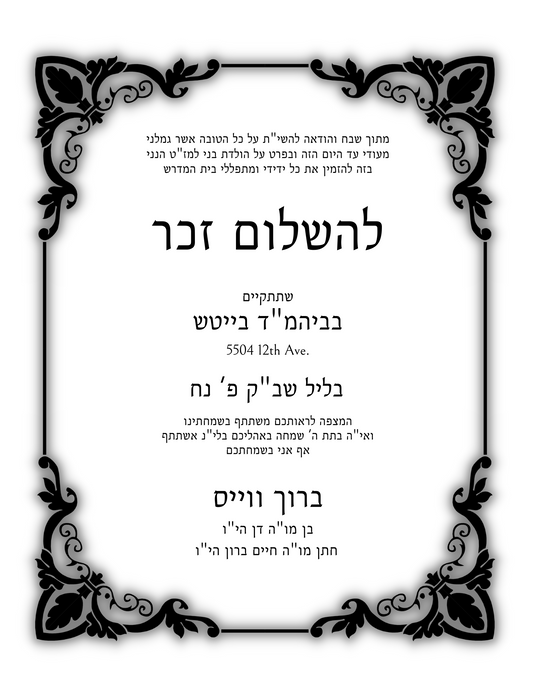 מתוך שבח והודאה להשי"ת על כל הטובה אשר גמלני
מעודי עד היום הזה ובפרט על הולדת בני למז"ט הנני
בזה להזמין את כל ידידי ומתפללי בית המדרש
להשלום זכר
שתתקיים
בביהמ"ד בייטש
5504 12th Ave.
בליל שב"ק פ' נח
המצפה לראותכם משתתף בשמחתינו
ואי"ה בתת ה' שמחה באהליכם בלי"נ אשתתף
אף אני בשמחתכם
ברוך ווייס
בן מו"ה דן הי"ו
חתן מו"ה חיים ברון הי"ו